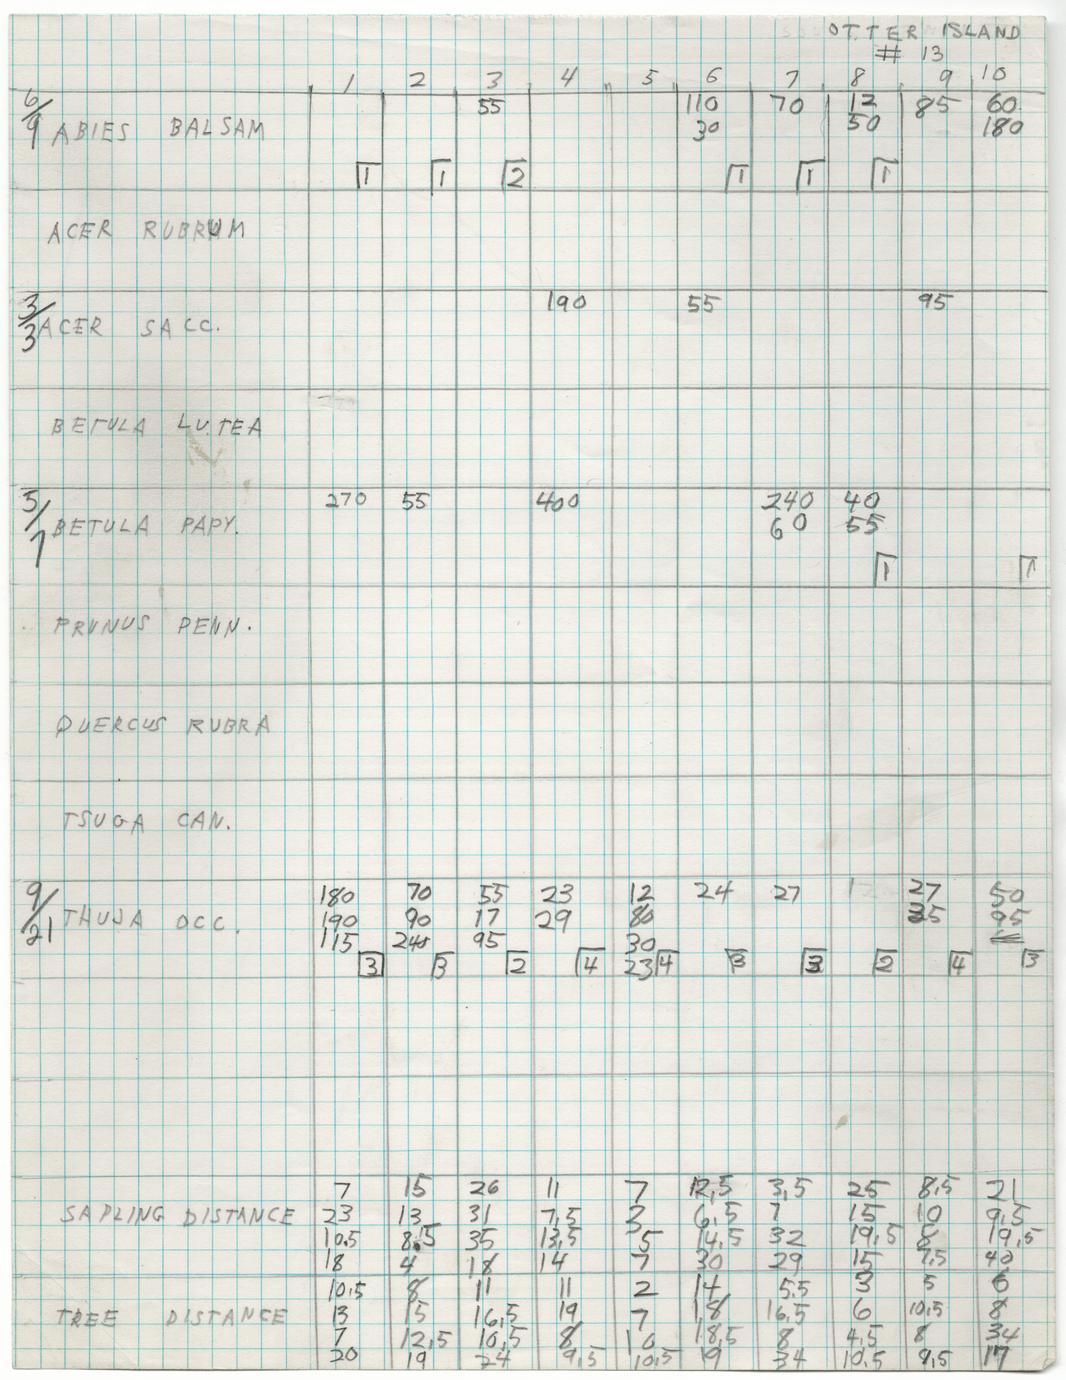 OTTER ISLAND
# 13
1 2 3 4 5 6 7 8 9 10
6/9 ABIES BALSAM 55 110 70 12 85 60
30 50 180
1 1 2 1 1 1
ACER RUBRUM
3/3 ACER SACC. 190 55 95
BETULA LUTEA
5/1 BETULA PAPY. 270 55 400 240 40
60 55
1 1
PRUNUS PENN.
QUERCUS RUBRA
TSUGA CAN.
9/21 THUJA OCC. 180 70 55 23 12 24 27 27 50
190 90 17 29 80 35 95
115 240 95 30
3 3 2 4 23 4 3 3 2 4 3
7 15 26 11 7 12,5 3,5 25 8,5 21
SAPLING DISTANCE 23 13 31 7,5 3 6,5 7 15 10 9,5
10,5 8,5 35 13,5 5 14,5 32 19,5 8 19,5
18 4 18 14 7 30 29 15 7,5 40
10,5 8 11 11 2 14 5,5 3 5 6
TREE DISTANCE 13 15 16,5 19 7 18 16,5 6 10,5 8
7 12,5 10,5 8 16 18,5 8 4,5 8 34
20 19 24 9,5 10,5 9 34 10,5 9,5 17